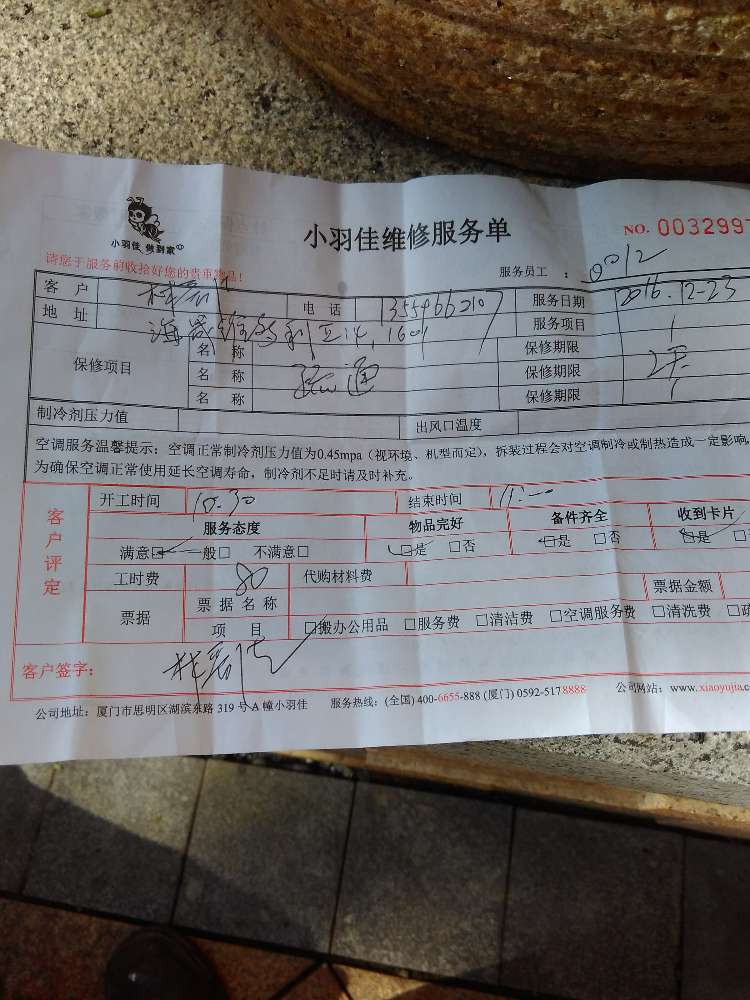 小羽佳 做到家
小羽佳维修服务单
NO. 0032997
请您于服务前收拾好您的贵重物品！
服务员工： 0012
客 户
电 话
服务日期 2016.12-23
地 址 1601
服务项目
保修项目
名 称
保修期限
名 称 疏通
保修期限 2天
名 称
保修期限
制冷剂压力值
出风口温度
空调服务温馨提示：空调正常制冷剂压力值为0.45mpa（视环境、机型而定），拆装过程会对空调制冷或制热造成一定影响，
为确保空调正常使用延长空调寿命，制冷剂不足时请及时补充。
客户评定
开工时间 10.30
结束时间 11:—
服务态度 物品完好 备件齐全 收到卡片
满意□ 一般□ 不满意□ □是 □否 □是 □否 □是
工时费 80 代购材料费
票据 票据名称 票据金额
项 目 □搬办公用品 □服务费 □清洁费 □空调服务费 □清洗费 □疏
客户签字：
公司地址：厦门市思明区湖滨东路 319 号 A 幢小羽佳 服务热线：(全国) 400-6655-888 (厦门) 0592-5178888 公司网站：www.xiaoyujia.c